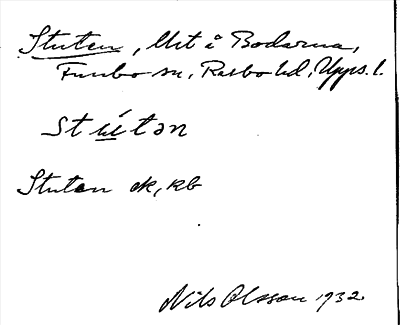 Stuten, Urt å Bodarna,
Funbo sn, Rasbo hd, Upps. l.
Stútən
Stuten ek, kb
Nils Olsson 1932